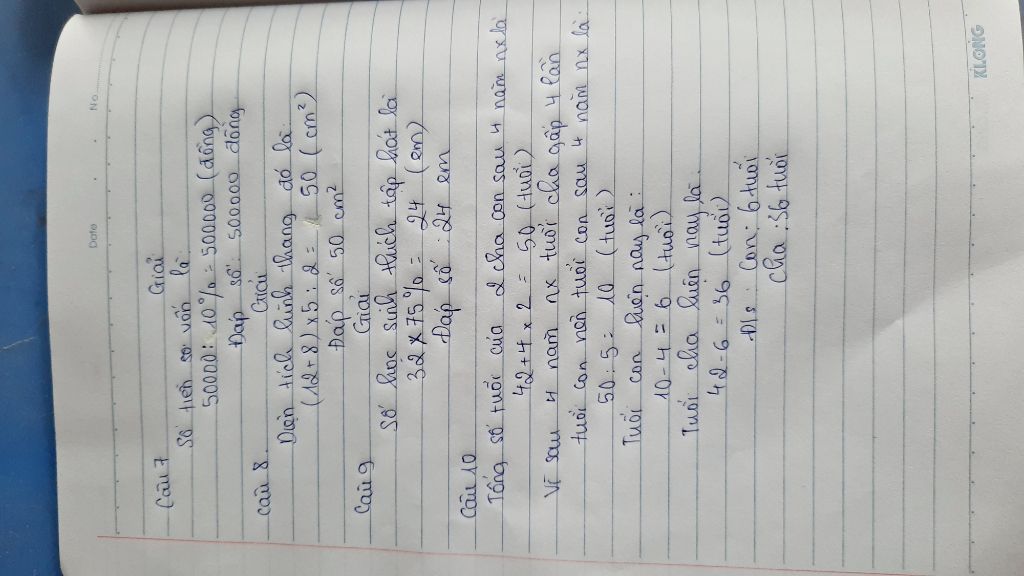 No.
Date
Câu 7 Giải
Số tiền số vốn là
50000 : 10% = 500000 (đồng)
Đáp số : 500000 đồng
Câu 8. Giải
Diện tích hình thang đó là:
(12+8) x 5 : 2 = 50 (cm²)
Đáp số 50 cm²
Câu 9 Giải
Số học sinh thích tập hát là
32 x 75% = 24 (em)
Đáp số : 24 em
Câu 10
Tổng số tuổi của 2 cha con sau 4 năm nx là
42+4 x 2 = 50 (tuổi)
Vì sau 4 năm nx tuổi cha gấp 4 lần
tuổi con nên tuổi con sau 4 năm nx là:
50 : 5 = 10 (tuổi)
Tuổi con hiện nay là:
10 - 4 = 6 (tuổi)
Tuổi cha hiện nay là:
42 - 6 = 36 (tuổi)
Đ/s : Con : 6 tuổi
Cha : 36 tuổi
KLONG